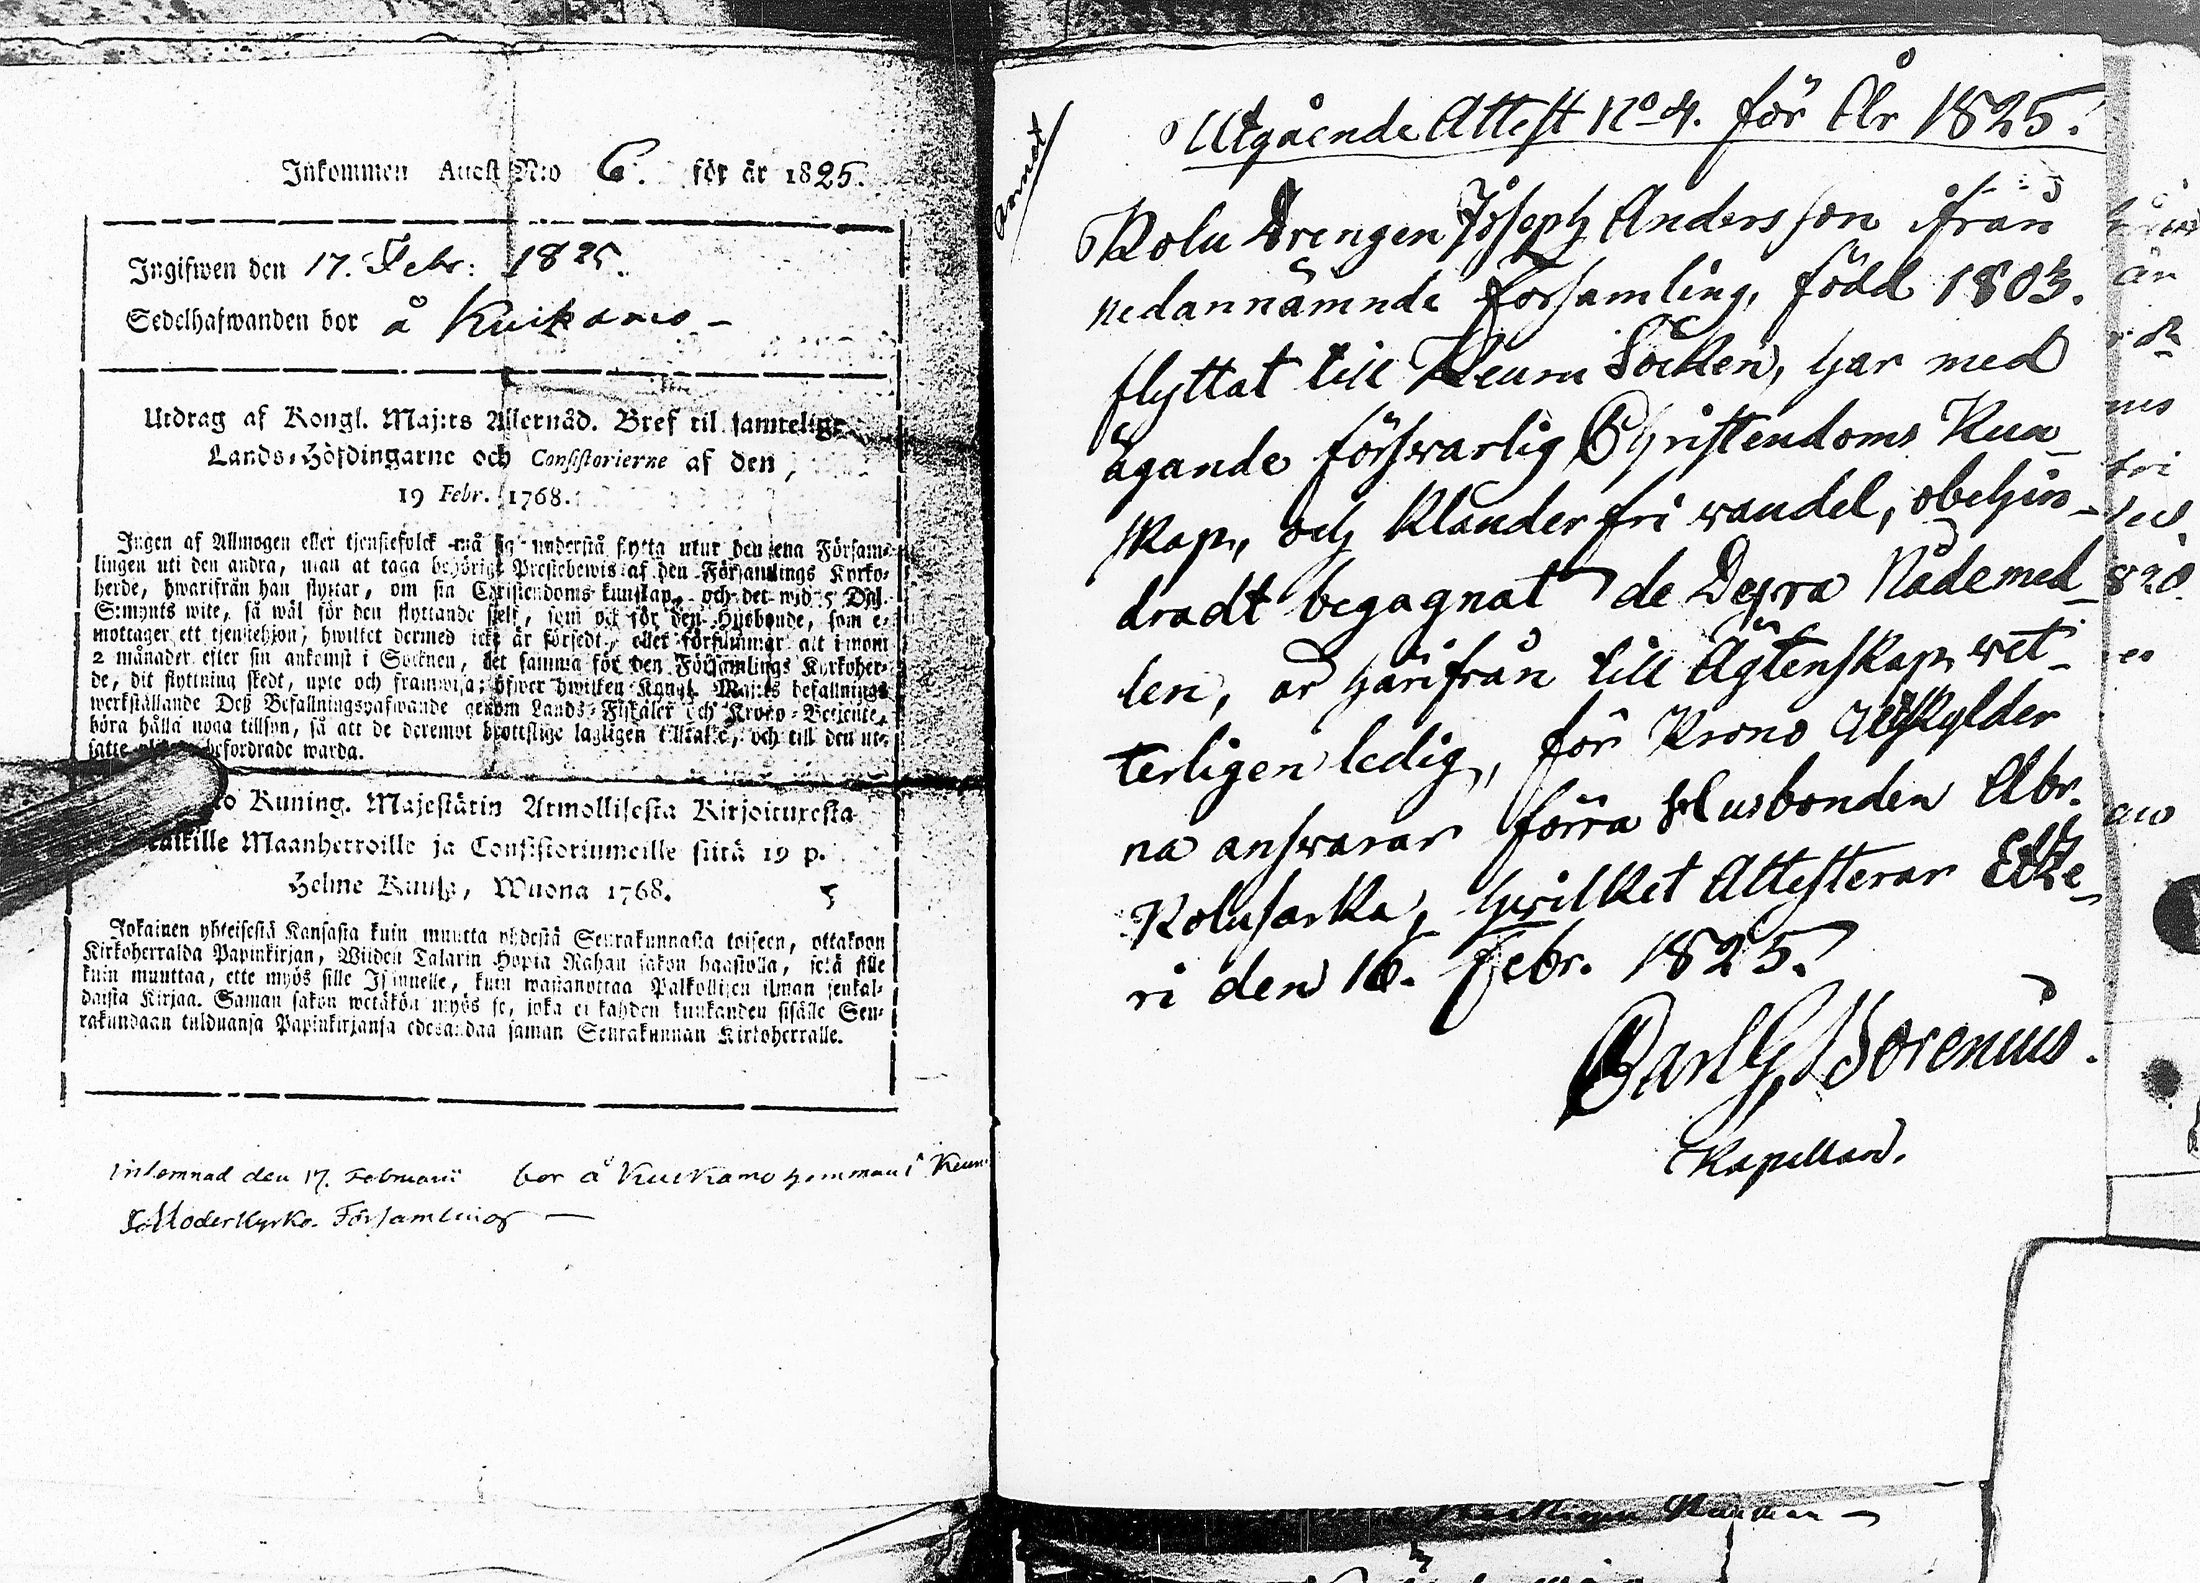 Inkommen Attest N:o 6. för år 1825.
Ingifwen den 17. Febr: 1825.
Sedelhafwanden bor å Kuikamo –
Utdrag af Kongl. Maj:ts Allernåd. Bref til samtelige
Lands-Höfdingarne och Consistorierne af den
19 Febr. 1768.
Ingen af Allmogen eller tjenstefolck må sig understå flytta utur den ena Församlingen
lingen uti den andra, utan at taga behörigt Prestebewis af den Församlings Kyrko-
herde, hwarifrån han flyttar, om sin Christendoms kunskap, och det wid 5 Dal.
S:mynts wite, så wäl för den flyttande sielf, som ock för den Husbonde, som e-
mottager ett tjenstehjon, hwilket dermed icke är försedt, eller försummar att inom
2 månader efter sin ankomst i Socknen, det samma för den Församlings Kyrkoher-
de, dit flyttning skedt, upte och framwisa; öfwer hwilken Kongl. Maj:ts befallnings
werkställande Deß Befallningshafwande genom Lands-Fiskaler och Krono-Betjente,
böra hålla noga tillsyn, så att de deremot brottslige lagligen tilltalte, och till den ut-
satte befordrade warda.
Kuning. Majestätin Armollisesta Kirjoituxesta
kaikille Maanherroille ja Consistoriumeille siitä 19 p.
Helme Kuusa, Wuona 1768.
Jokainen yhteisestä Kansasta kuin muutta yhdestä Seurakunnasta toiseen, ottakoon
Kirkoherralda Papinkirjan, Wiiden Talarin Hopia Rahan sakon haastolla, sekä sille
kuin muuttaa, ette myös sille Isännelle, kuin wastanottaa Palkollisen ilman senkal-
daista Kirjaa. Saman sakon wetäkön myös se, joka ei kahden kuukauden sisälle Seu-
rakundaan tulduansa Papinkirjansa edesandaa saman Seurakunnan Kirkoherralle.
Inlemnad den 17. Februarii bor å Kuikamo hemman i Keuru
Moderkyrko Församling –
Annot
Utgående Attest No 4. för År 1825.
Kolu Drengen Joseph Andersson ifrån
nedannämnde församling, född 1803.
flyttat till Keuru Socken, har med
ägande förswarlig Christendoms Kun-
skap, och Klanderfri wandel, obehin-
dradt begagnat de Dyra Nådemed-
len, är härifrån till Ägtenskap wet-
terligen ledig, för Krono Utskylder
na answarar förra Husbonden Abr.
Kolusarka, hwilket Attesterar Etze-
ri den 16. Febr. 1825.
Carl G. Borenius.
Kapellan.